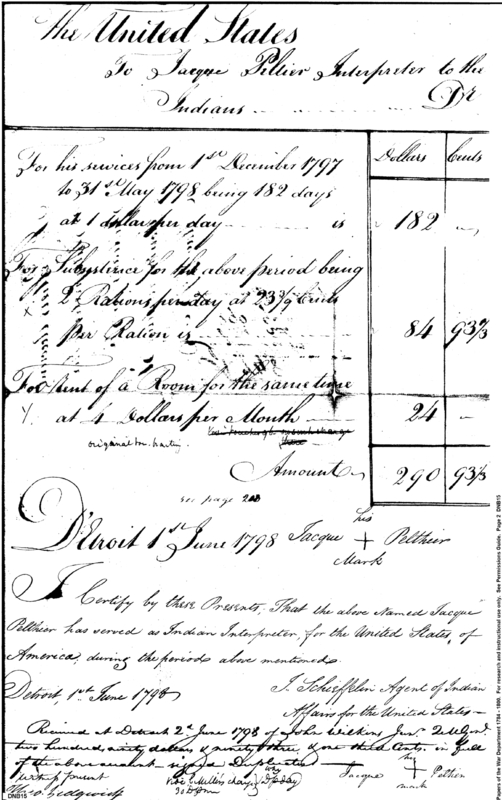 The United States
To Jacque Peltier Interpreter to the
Indians Dr
Dollars Cents
For his services from 1st December 1797
to 31st May 1798 being 182 days
at 1 dollar per day is 182 "
For Subsistence for the above period being
2 Rations per day at 23 1/3 Cents
per Ration is 84 93 1/3
For Rent of a Room for the same time
at 4 Dollars per Month 24 "
Amount 290 93 1/3
see page 203
Detroit 1st June 1798 Jacque his + Mark Pelthier
I Certify by these Presents, That the above Named Jacque
Pelthier has served as Indian Interpreter for the United States of
America, during the periods above mentioned
Detroit, 1st June 1798
J. Schieffelin Agent of Indian
Affairs for the United States
Received at Detroit 2d June 1798 of John Wilkins Junr. 2 M Genl.
two hundred ninety dollars & ninety three & one third Cents, in full
of the above account - signed Duplicates
witness present
Jacque his + mark Pelthier
Thos. Sedgwick
Papers of the War Department 1784 - 1800. For research and instructional use only. See Permissions Guide. Page 2 DNB15
DNB15